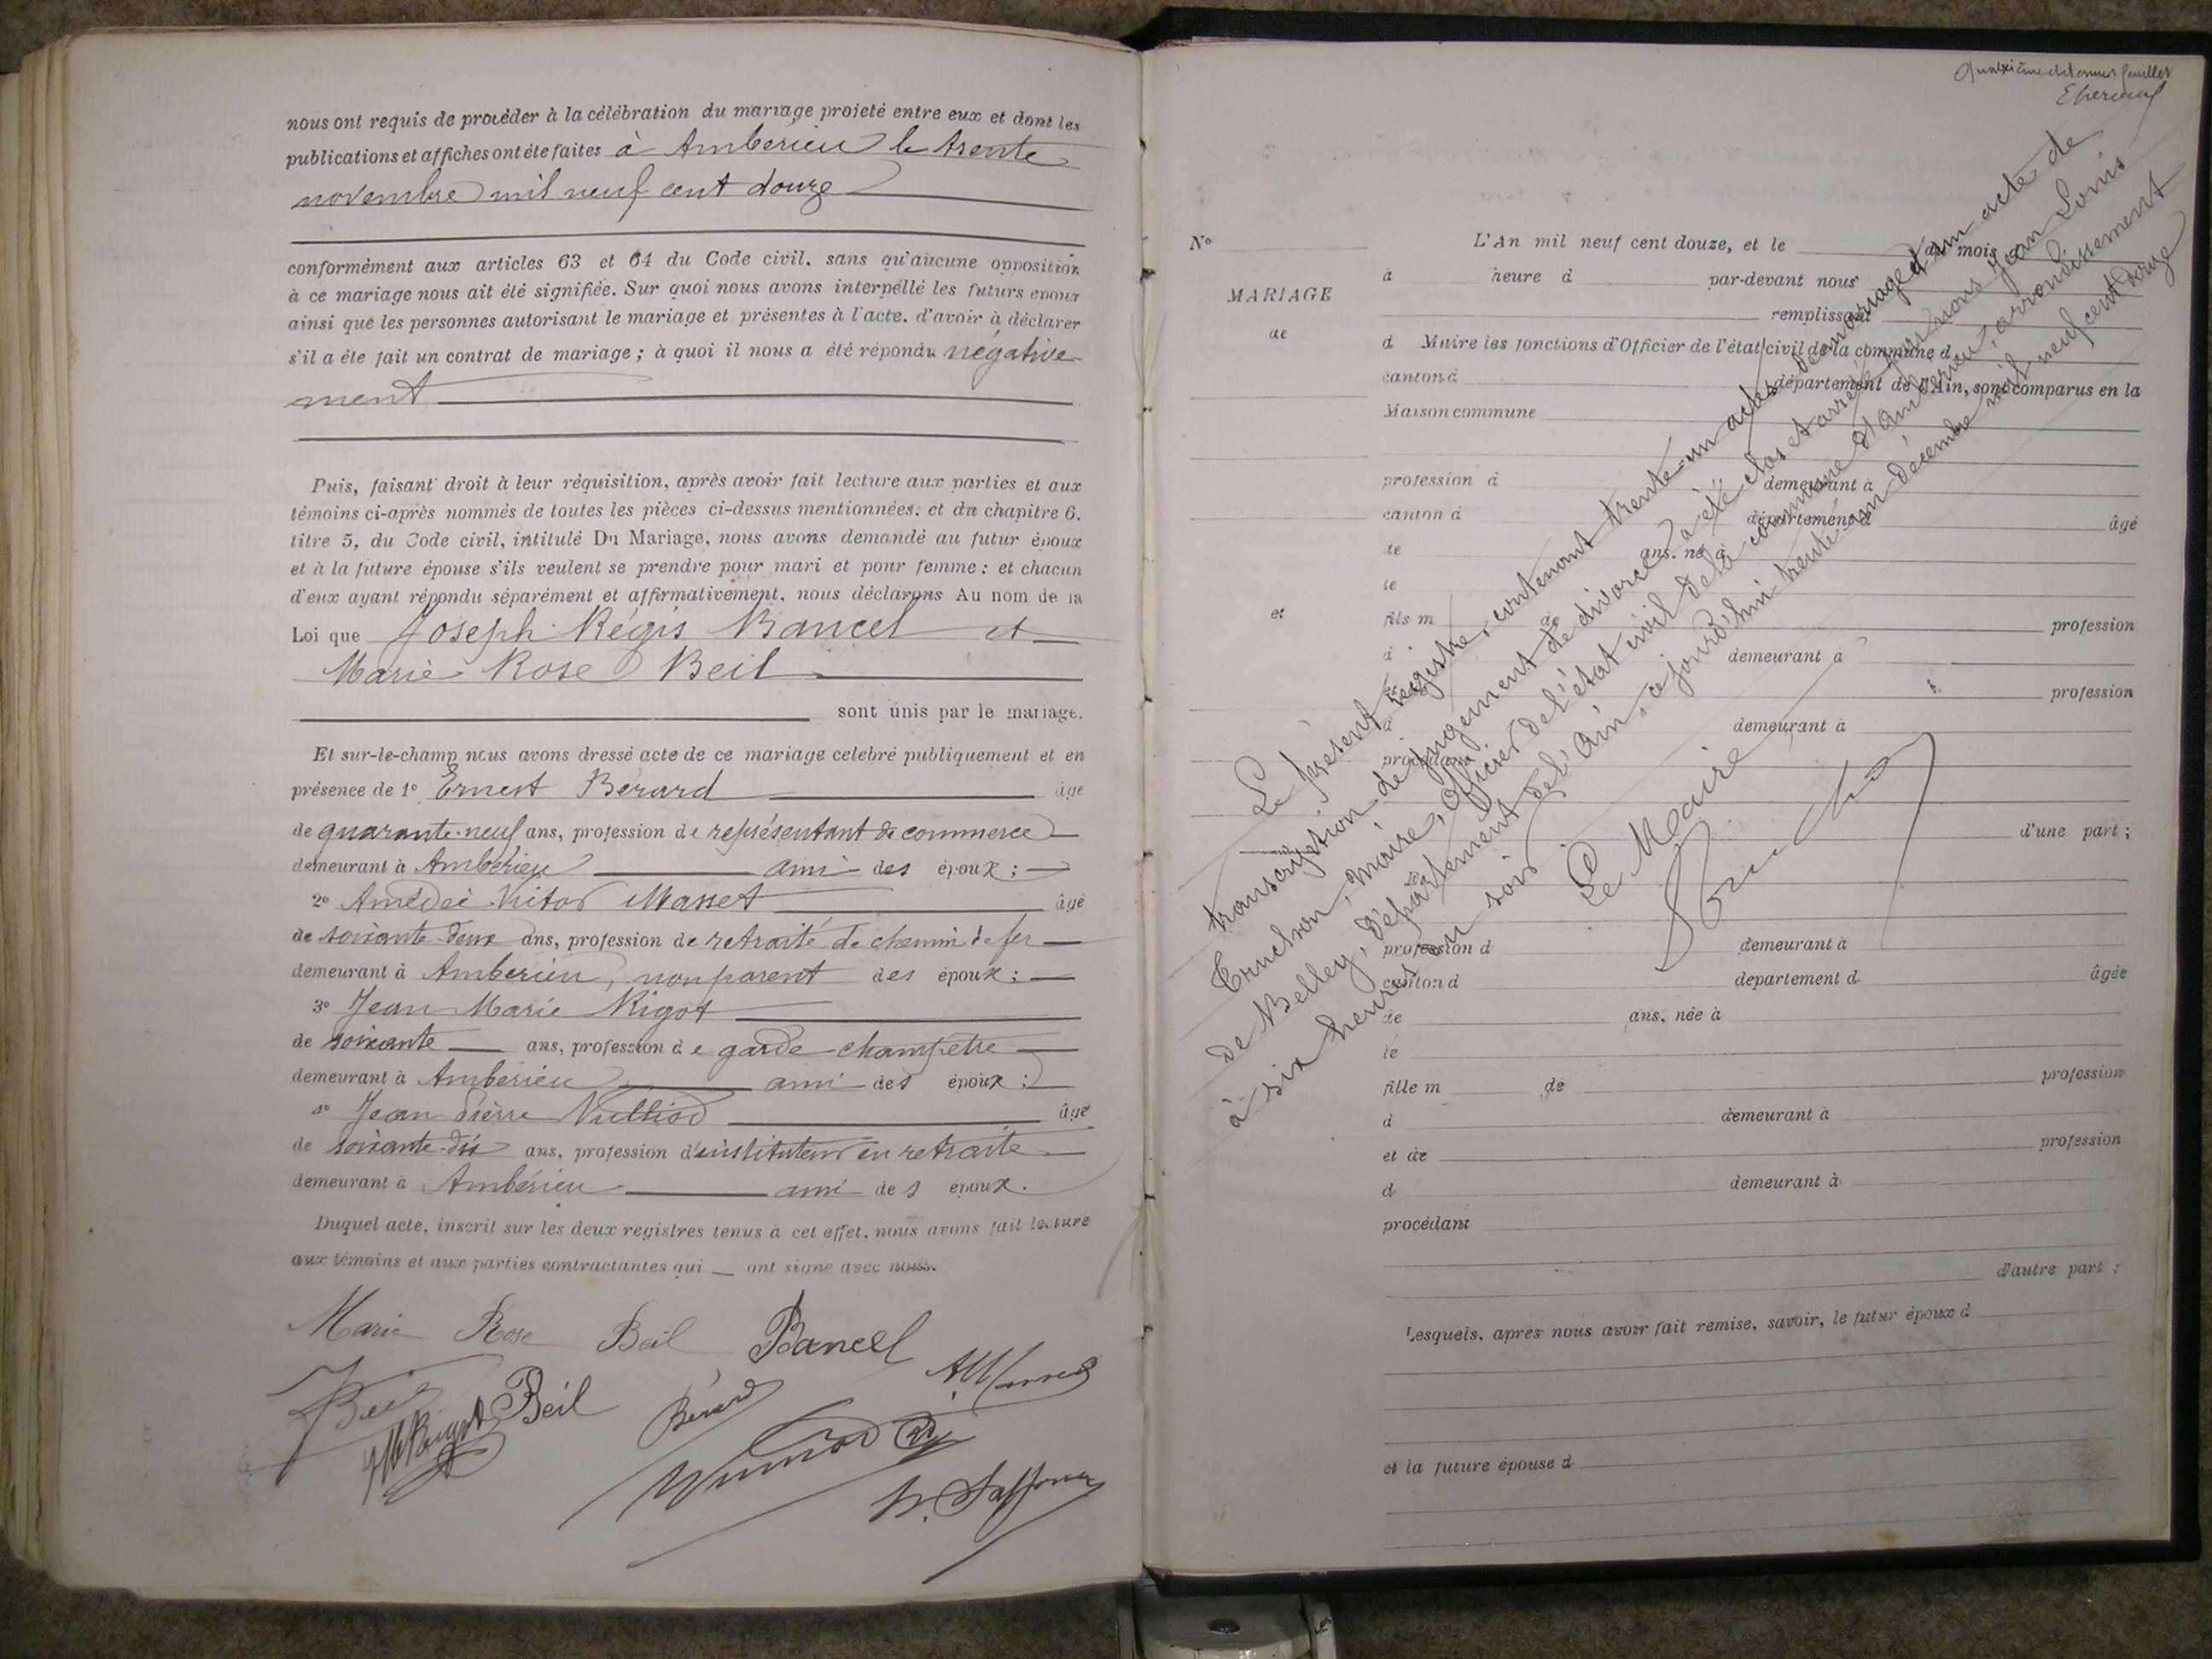 nous ont requis de procéder à la célébration du mariage projeté entre eux et dont les
publications et affiches ont été faites à Ambérieu le trente
novembre mil neuf cent douze
conformément aux articles 63 et 64 du Code civil, sans qu'aucune opposition
à ce mariage nous ait été signifiée. Sur quoi nous avons interpellé les futurs époux
ainsi que les personnes autorisant le mariage et présentes à l'acte, d'avoir à déclarer
s'il a été fait un contrat de mariage ; à quoi il nous a été répondu négative
ment
Puis, faisant droit à leur réquisition, après avoir fait lecture aux parties et aux
témoins ci-après nommés de toutes les pièces ci-dessus mentionnées, et du chapitre 6,
titre 5, du Code civil, intitulé Du Mariage, nous avons demandé au futur époux
et à la future épouse s'ils veulent se prendre pour mari et pour femme : et chacun
d'eux ayant répondu séparément et affirmativement, nous déclarons Au nom de la
Loi que Joseph Régis Bancel et
Marie Rose Beil
sont unis par le mariage.
Et sur-le-champ nous avons dressé acte de ce mariage célébré publiquement et en
présence de 1° Ernest Bérard âgé
de quarante-neuf ans, profession de représentant de commerce
demeurant à Ambérieu ami des époux ;
2° Amédée Victor Masset âgé
de soixante-deux ans, profession de retraité de chemin de fer
demeurant à Ambérieu, non parent des époux ;
3° Jean Marie Rigot
de soixante ans, profession de garde-champêtre
demeurant à Ambérieu ami des époux ;
4° Jean Pierre Vulliod âgé
de soixante-dix ans, profession d'instituteur en retraite
demeurant à Ambérieu ami des époux.
Duquel acte, inscrit sur les deux registres tenus à cet effet, nous avons fait lecture
aux témoins et aux parties contractantes qui ont signé avec nous.
Marie Rose Beil Bancel
Beil Bérard
feuillet
N° L'An mil neuf cent douze, et le du mois
à heure d par-devant nous
MARIAGE
remplissant
de
d Maire les fonctions d'Officier de l'état civil de la commune d
canton d département de l'Ain, sont comparus en la
Maison commune
profession d demeurant à
canton d département d âgé
de ans, né à
le
et
fils m de profession
d demeurant à
et de profession
d demeurant à
procédant
d'une part ;
profession d demeurant à
canton d département d âgée
de ans, née à
le
fille m de profession
d demeurant à
et de profession
d demeurant à
procédant
d'autre part ;
Lesquels, après nous avoir fait remise, savoir, le futur époux d
et la future épouse d
Le présent registre, contenant trente-un actes de mariage et un acte de
transcription de jugement de divorce, a été clos et arrêté par nous Jean Louis
Truchon, Maire, Officier de l'état civil de la commune d'Ambérieu, arrondissement
de Belley, département de l'Ain, ce jourd'hui trente-un décembre mil neuf cent douze
à six heures du soir
Le Maire